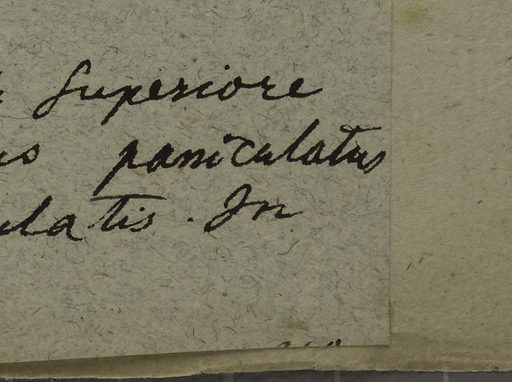 superiore
us paniculatus
latis. In